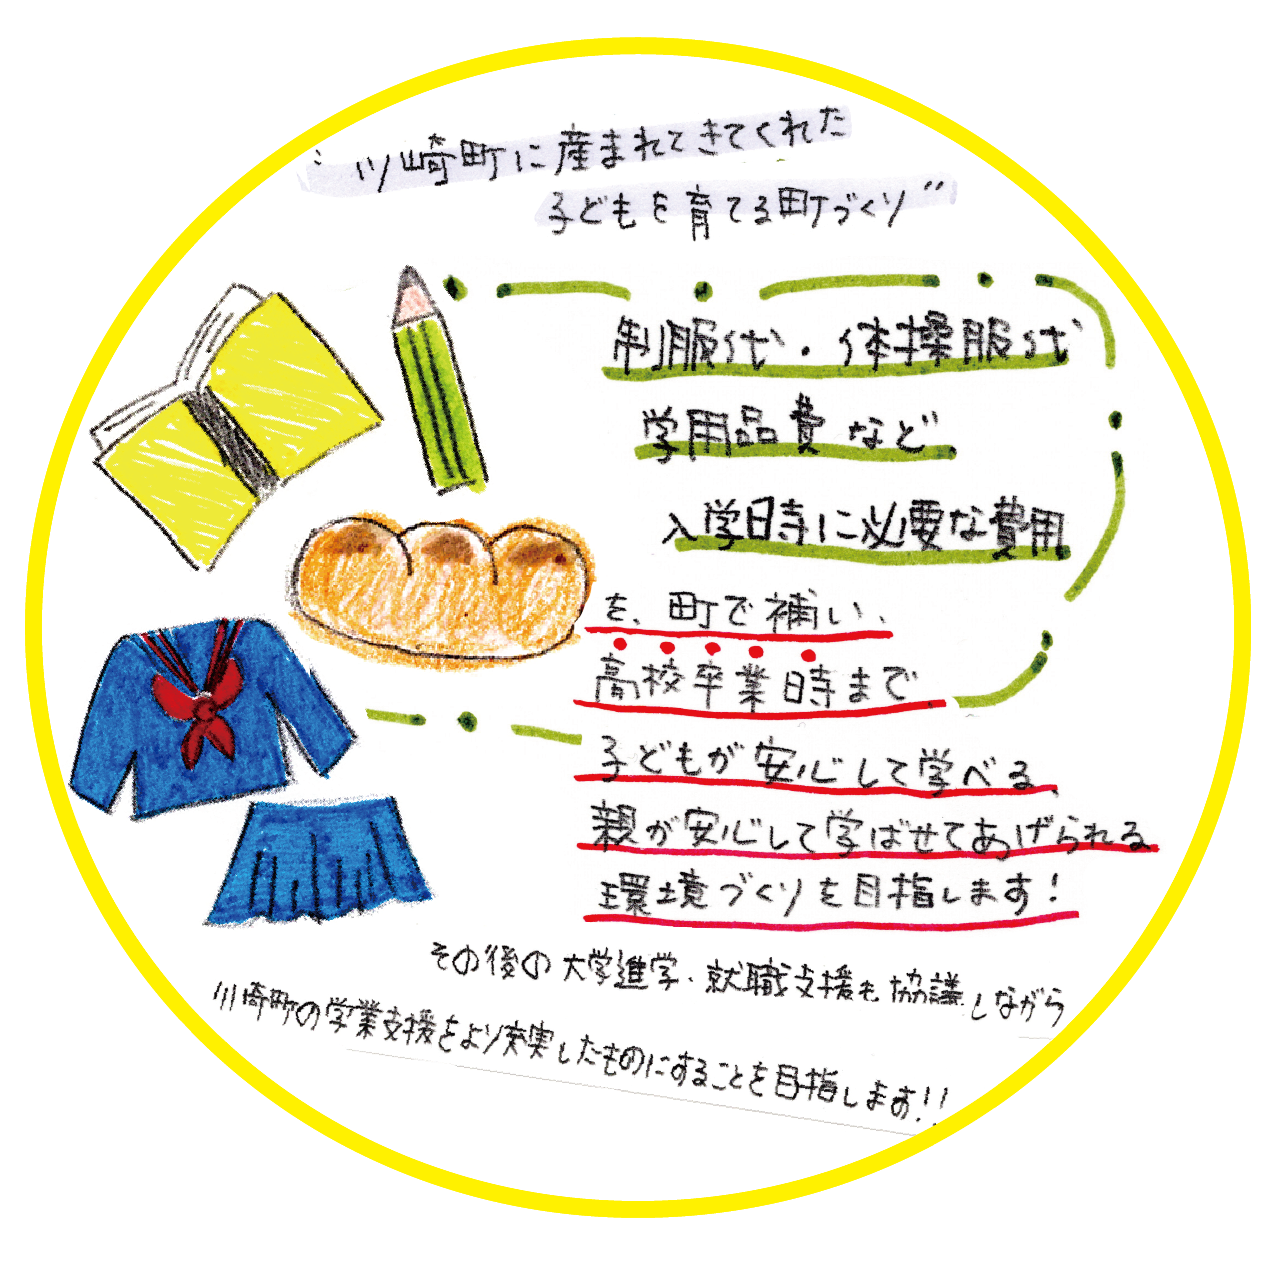 “川崎町に産まれてきてくれた
子どもを育てる町づくり”
制服代・体操服代
学用品費など
入学時に必要な費用
を、町で補い、
高校卒業時まで
子どもが安心して学べる、
親が安心して学ばせてあげられる
環境づくりを目指します!
その後の大学進学、就職支援も協議しながら
川崎町の学業支援をより充実したものにすることを目指します!!